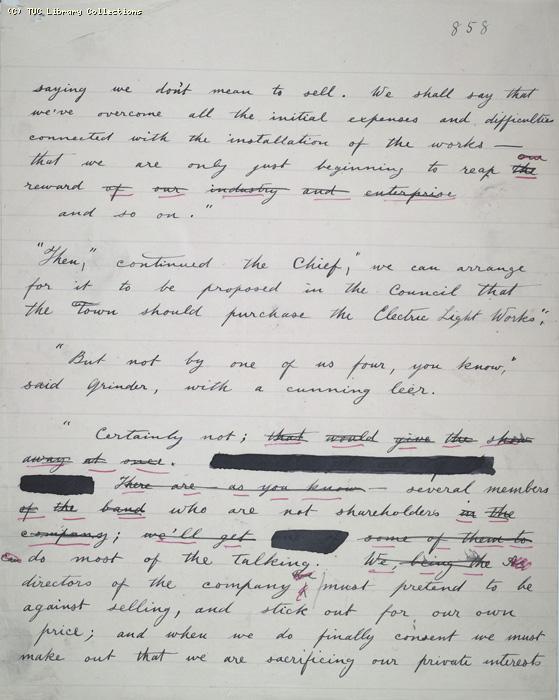 (C) TUC Library Collections
858
saying we don't mean to sell. We shall say that
we've overcome all the initial expenses and difficulties
connected with the installation of the works —
our
that we are only just beginning to reap the
reward of our industry and enterprise
and so on."
"Then," continued the Chief, "we can arrange
for it to be proposed in the Council that
the Town should purchase the Electric Light Works".
"But not by one of us four, you know,"
said Grinder, with a cunning leer.
" Certainly not; that would give the show
away at once.
There are — as you know — several members
of the band who are not shareholders in the
company; we'll get some of them to
do most of the talking. We, being the
directors of the company must pretend to be
against selling, and stick out for our own
price; and when we do finally consent we must
make out that we are sacrificing our private interests